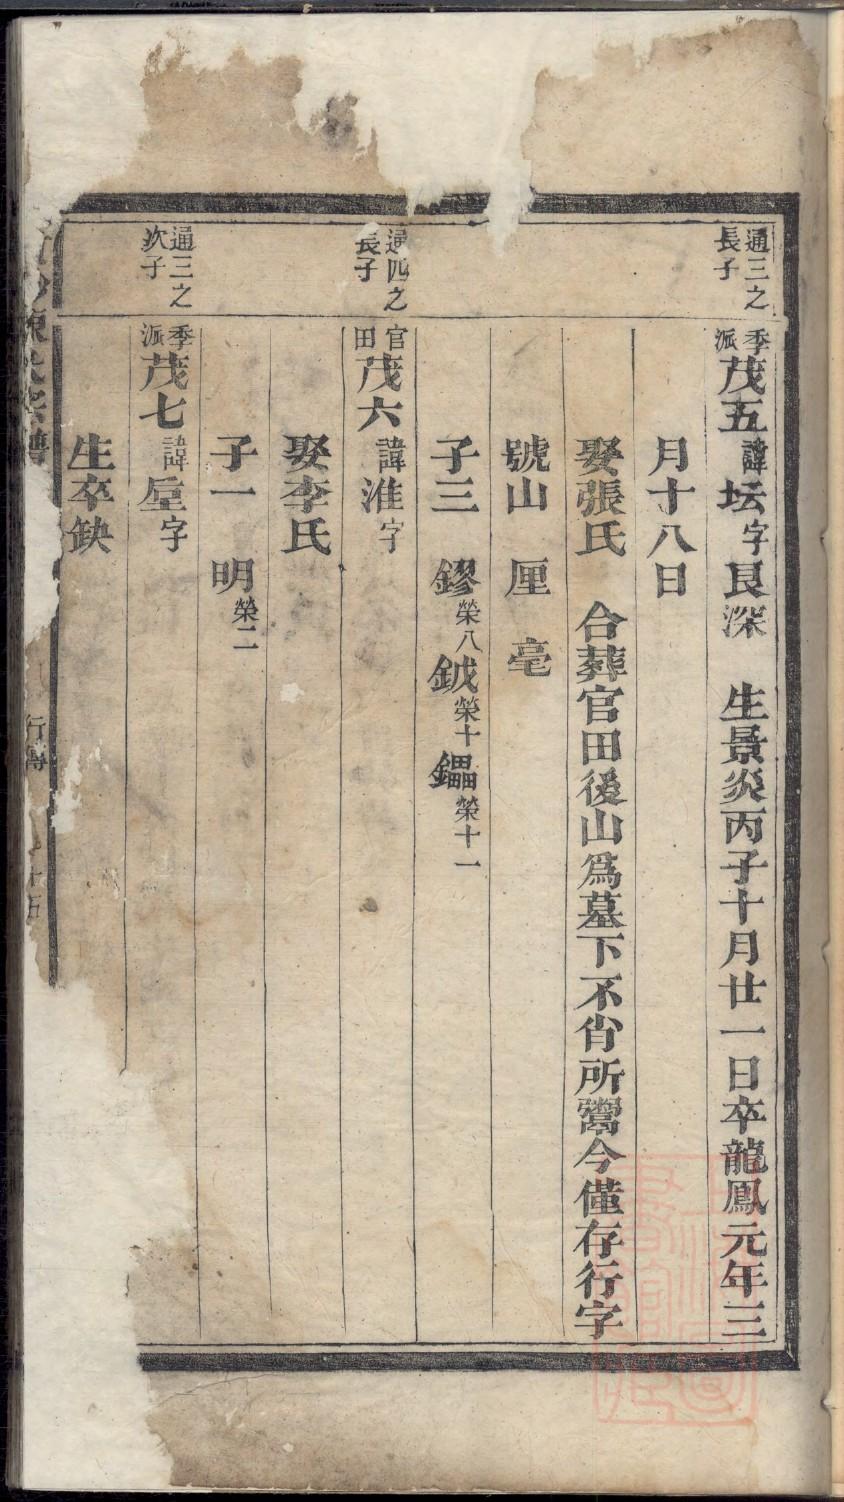 通三之
長子
季派茂五諱坛字艮深　生景炎丙子十月廿一日卒龍鳳元年三
月十八日
娶張氏　合葬官田後山爲墓下不肖所鬻今僅存行字
號山　厘　毫
子三　鏐榮八鉞榮十鑘榮十一
通四之
長子
官田茂六諱淮字
娶李氏
子一　明榮二
通三之
次子
季派茂七諱垕字
生卒缺
陳氏宗譜
行傳
十五